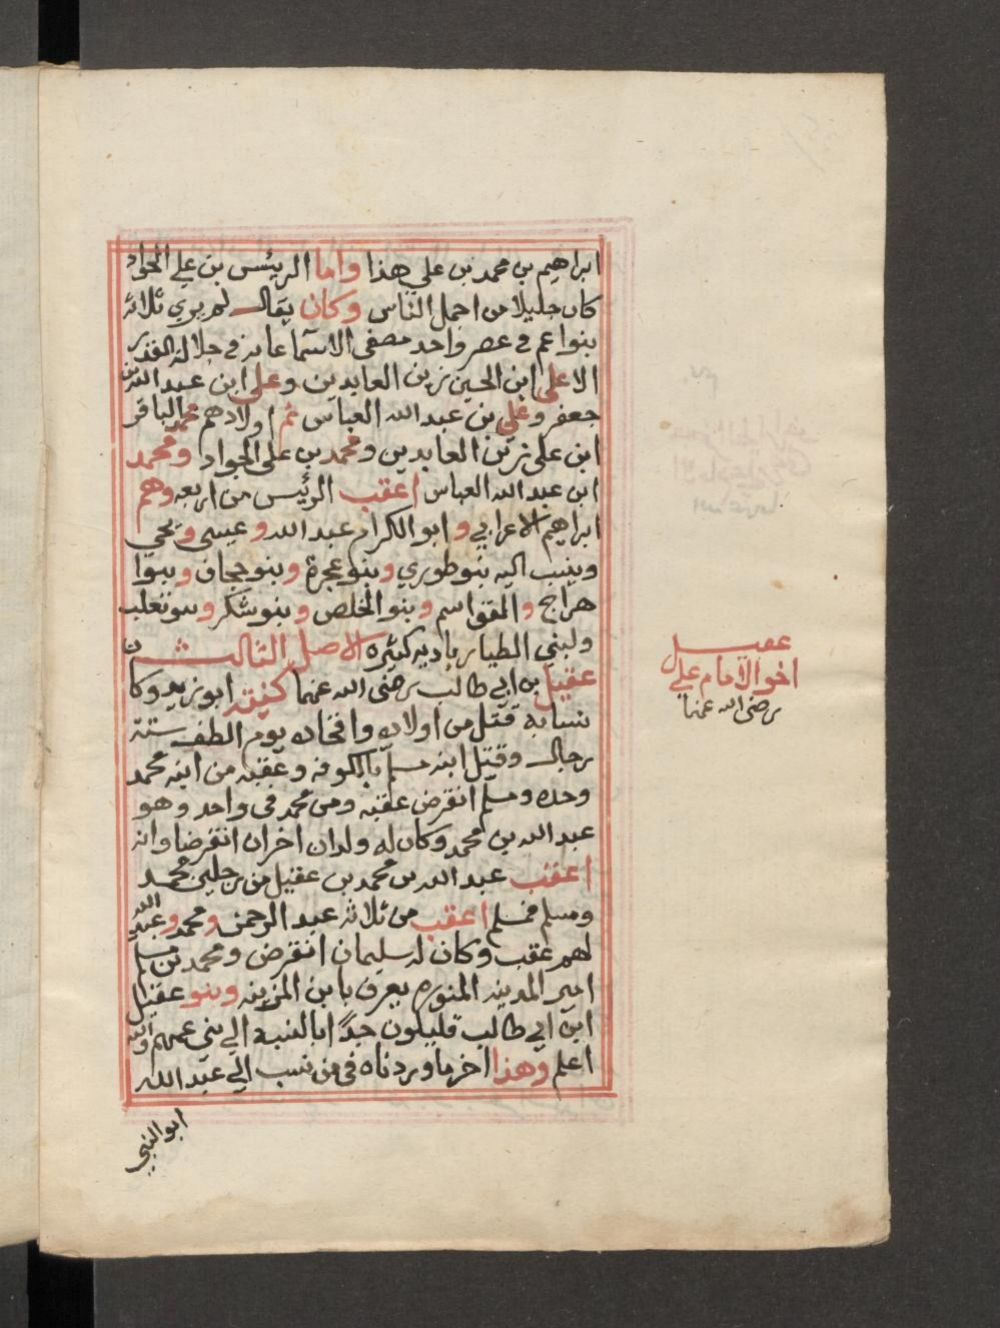 ابراهيم بن محمد بن علي هذا واما الرئيس بن علي الجواد
كان جليلا من اجمل الناس وكان يقال لم يري ثلاثه
بنوا عم في عصر واحد متفقي الاسما في جلالة القدر
الا علي ابن الحسين زين العابدين وعلي ابن عبد الله بن
جعفر وعلي بن عبد الله العباس ثم اولادهم محمد الباقر
ابن علي زين العابدين ومحمد بن علي الجواد ومحمد
ابن عبد الله العباس اعقب الرئيس من اربعه وهم
ابراهيم الاعرابي وابو الكرام عبد الله وعيسي ويحي
وينسب اليه بنو طوري وبنو عجرة وبنو حجاف وبنوا
هراج والمقواسم وبنو المخلص وبنو شكر وبنو تغلب
ولبني الطيار باديه كثيره الاصل الثالث
عقيل بن ابي طالب رضي الله عنهما كنيته ابو زيد وكان
نسابة قتل من اولاده وافخاده يوم الطف ستة
رجال وقتل ابنه مسلم بالكوفه وعقبه من ابنه محمد
وحده ومسلم انقرض عقبه ومن محمد في واحد وهو
عبد الله بن محمد وكان له ولدان اخران انقرضا وانه
اعقب عبد الله بن محمد بن عقيل من رجلين محمد
ومسلم فمسلم اعقب من ثلاثه عبد الرحمن ومحمد وعبد الله
لهم عقب وكان له سليمان انقرض ومحمد بن مسلم
امير المدينه المنوره يعرف بابن المزينه وبنو عقيل
ابن ابي طالب قليلون جدًا بالنسبة الي بني عمهم والله
اعلم وهذا اخر ما وردناه في من نسب الي عبد الله
ابو النبي
عقيل
اخو الامام علي
رضي الله عنهما